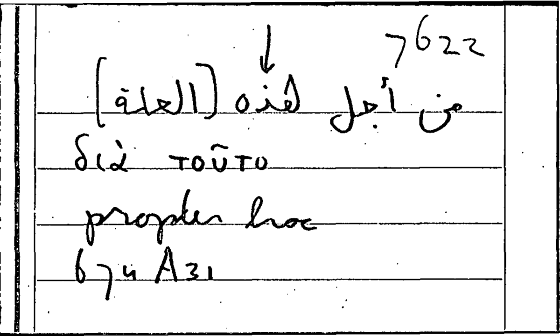 7622
↓
من أجل هذه (العلة)
διὰ τοῦτο
propter hoc
674 A31